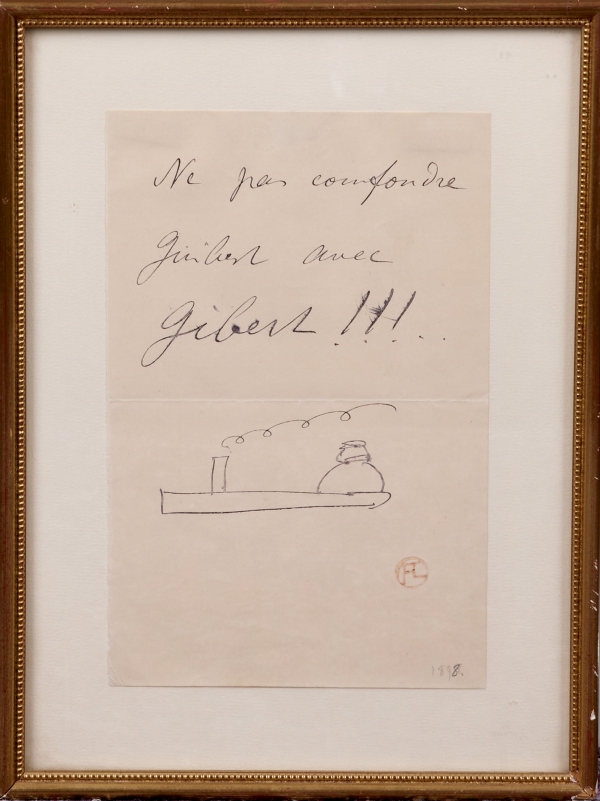 Ne pas comfondre
Guibert avec
Gibert !!!...
1898.